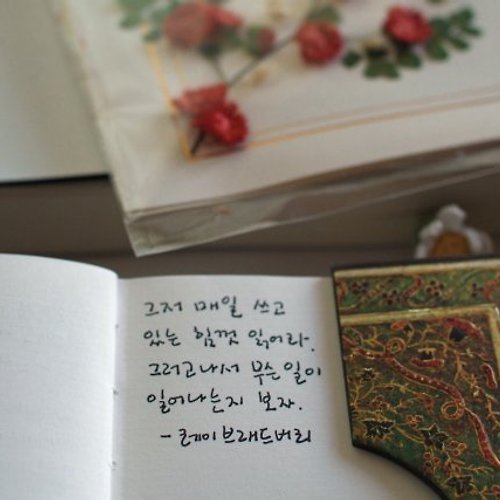 그저 매일 쓰고
있는 힘껏 읽어라.
그러고나서 무슨 일이
일어나는지 보자.
- 레이 브래드버리